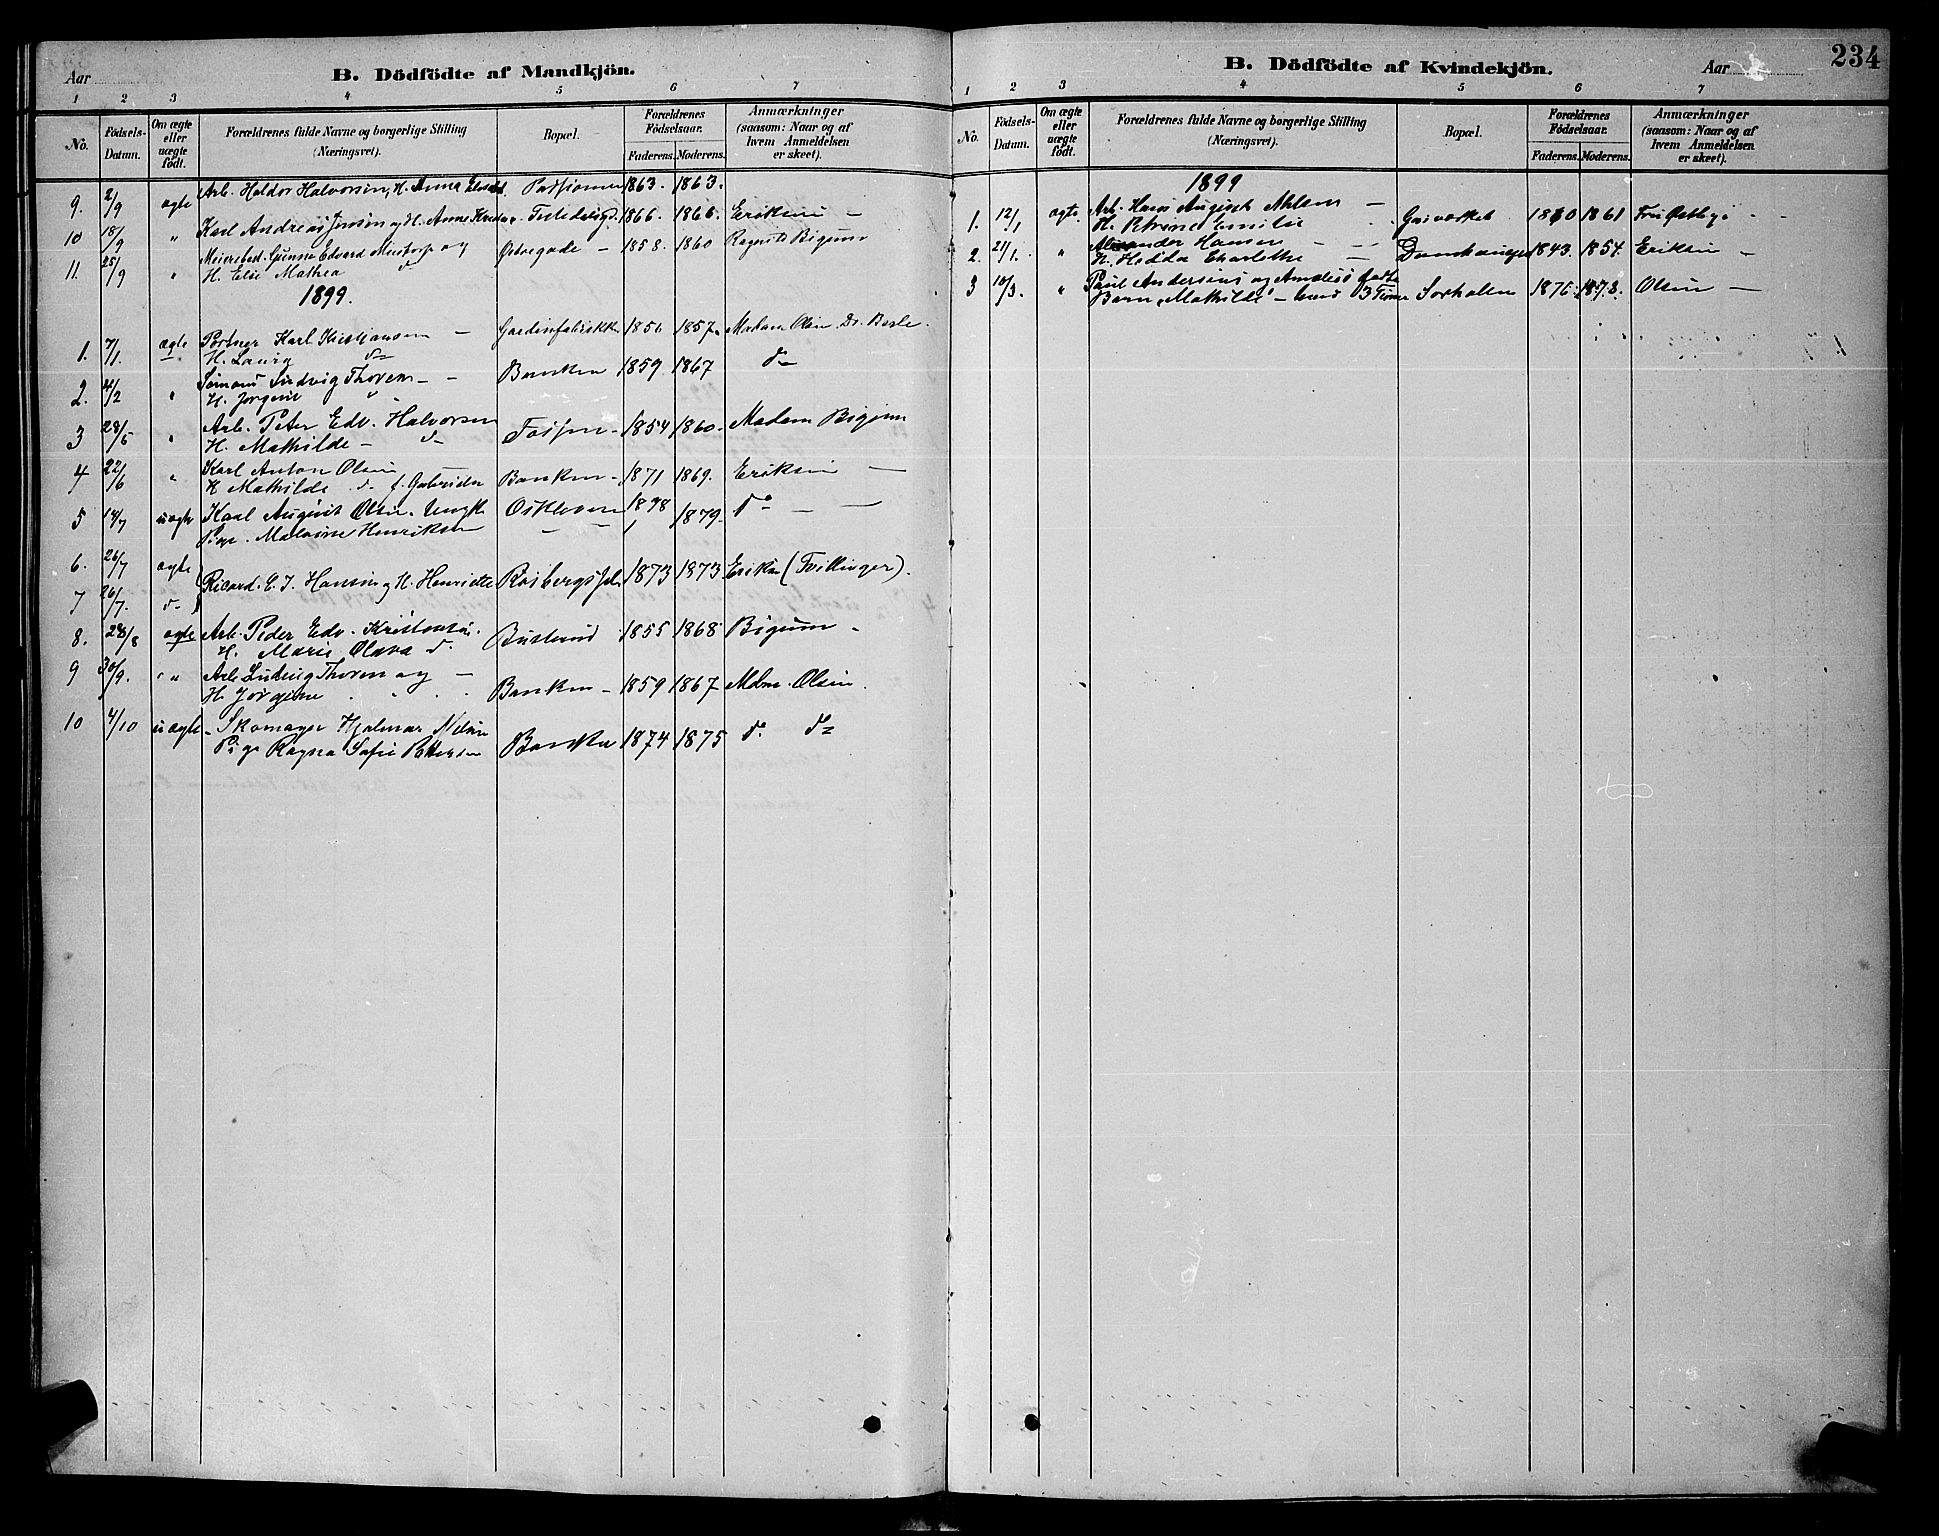 234
Aar
B. Dödfödte af Mandkjön.
1 2 3 4 5 6 7
No.
Födsels-Datum.
Om ægte eller uægte født.
Forældrenes fulde Navne og borgerlige Stilling
(Næringsvei).
Bopæl.
Forældrenes Födselsaar.
Faderens. Moderens.
Anmærkninger
(saasom: Naar og af
hvem Anmeldelsen
er skeet).
9. 2/9 ægte Arb. Haldor Halvorsen, H. Anna 1863. 1863.
10 18/9 " Karl Andreas Jensen og H. Anne 1866. 1866. Eriksen —
11. 25/9 " Meierebest. Gunne Edvard og Østregade – 1858. 1860 Bigum
H. Elie Mathea do
1899.
1. 7/1 ægte Portner Karl Kristiansen — Gardinfabrikken 1856 1857. Madam Olsen. Dr.
H. Laura do
2. 4/2 " Ludvig Thoren – – Banken 1859. 1867 do
H. Jørgine "
3 28/5 " Arb. Peter Edv. Halvorsen Fossen – 1854 1860. Madam Bigum
H. Mathilde – do
4 22/6 " Karl Anton Olsen Banken – 1871 1869. Eriksen —
H Mathilde do f.
5 14/7 uægte Karl August Olsen. Ungk. Oskleven 1878 1879. do – —
Pige. Malvine Henriksen – –
6. 26/7 ægte Ricard. E. J. Hansen og H. Henriette 1873 1873 Eriksen (Tvillinger).
7 26/7. do
8. 28/8 ægte Arb. Peder Edv. Kristensen. 1855 1868 Bigum –
H. Marie Olava do
9 30/9. " Arb. Ludvig Thoren og — Banken – 1859 1867 Mdm. Olsen.
H. Jørgine
10 4/10 uægte Skomager Hjalmar Nilsen Banken 1874 1875 do do
Pige Ragna Sofie Pettersen
B. Dödfödte af Kvindekjön.
Aar
1 2 3 4 5 6 7
No.
Födsels-Datum.
Om ægte eller uægte født.
Forældrenes fulde Navne og borgerlige Stilling
(Næringsvei).
Bopæl.
Forældrenes Födselsaar.
Faderens. Moderens.
Anmærkninger
(saasom: Naar og af
hvem Anmeldelsen
er skeet).
1899
1. 12/1 ægte Arb. Hans August — Gasværket 1861 Fru Østbye - -
H. Petrine Emilie
2. 21/1. " Alexander Hansen – – 1843. 1854. Eriksen –
H. Hedda Charlotte —
3 10/3. " Paul Andersens og
Barn, Mathilde – 3 Timer Sorhalen 1876. 1873. Olsen —